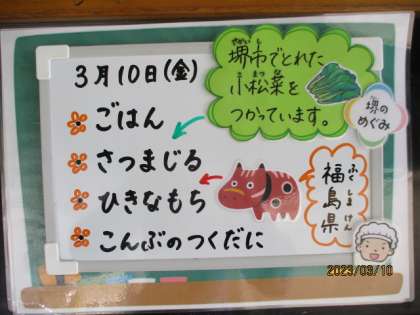 3月10日(金)
ごはん
さつまじる
ひきなもち
こんぶのつくだに
堺市でとれた
小松菜を
つかっています。
堺の
めぐみ
福島県
ふくしまけん
2023/03/10